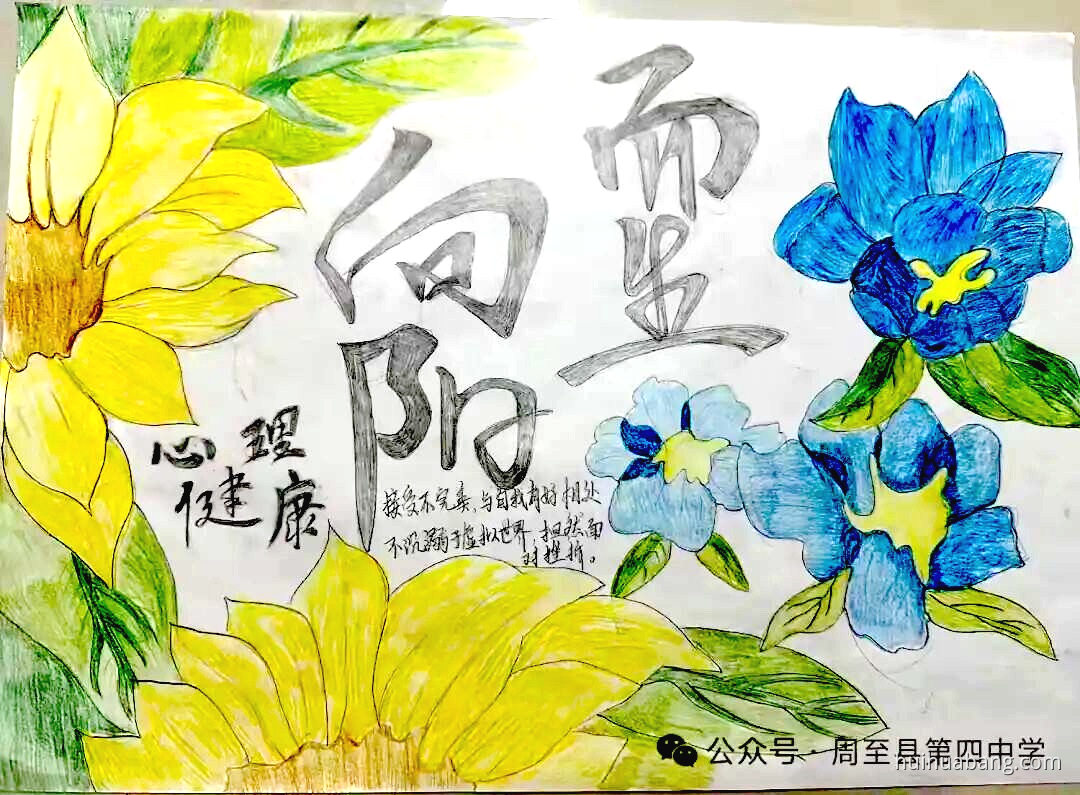 向阳
而生
心理
健康
接受不完美,与自我有好相处
不沉溺于虚拟世界,担然面
对挫折。
公众号·周至县第四中学
huihuabang.com